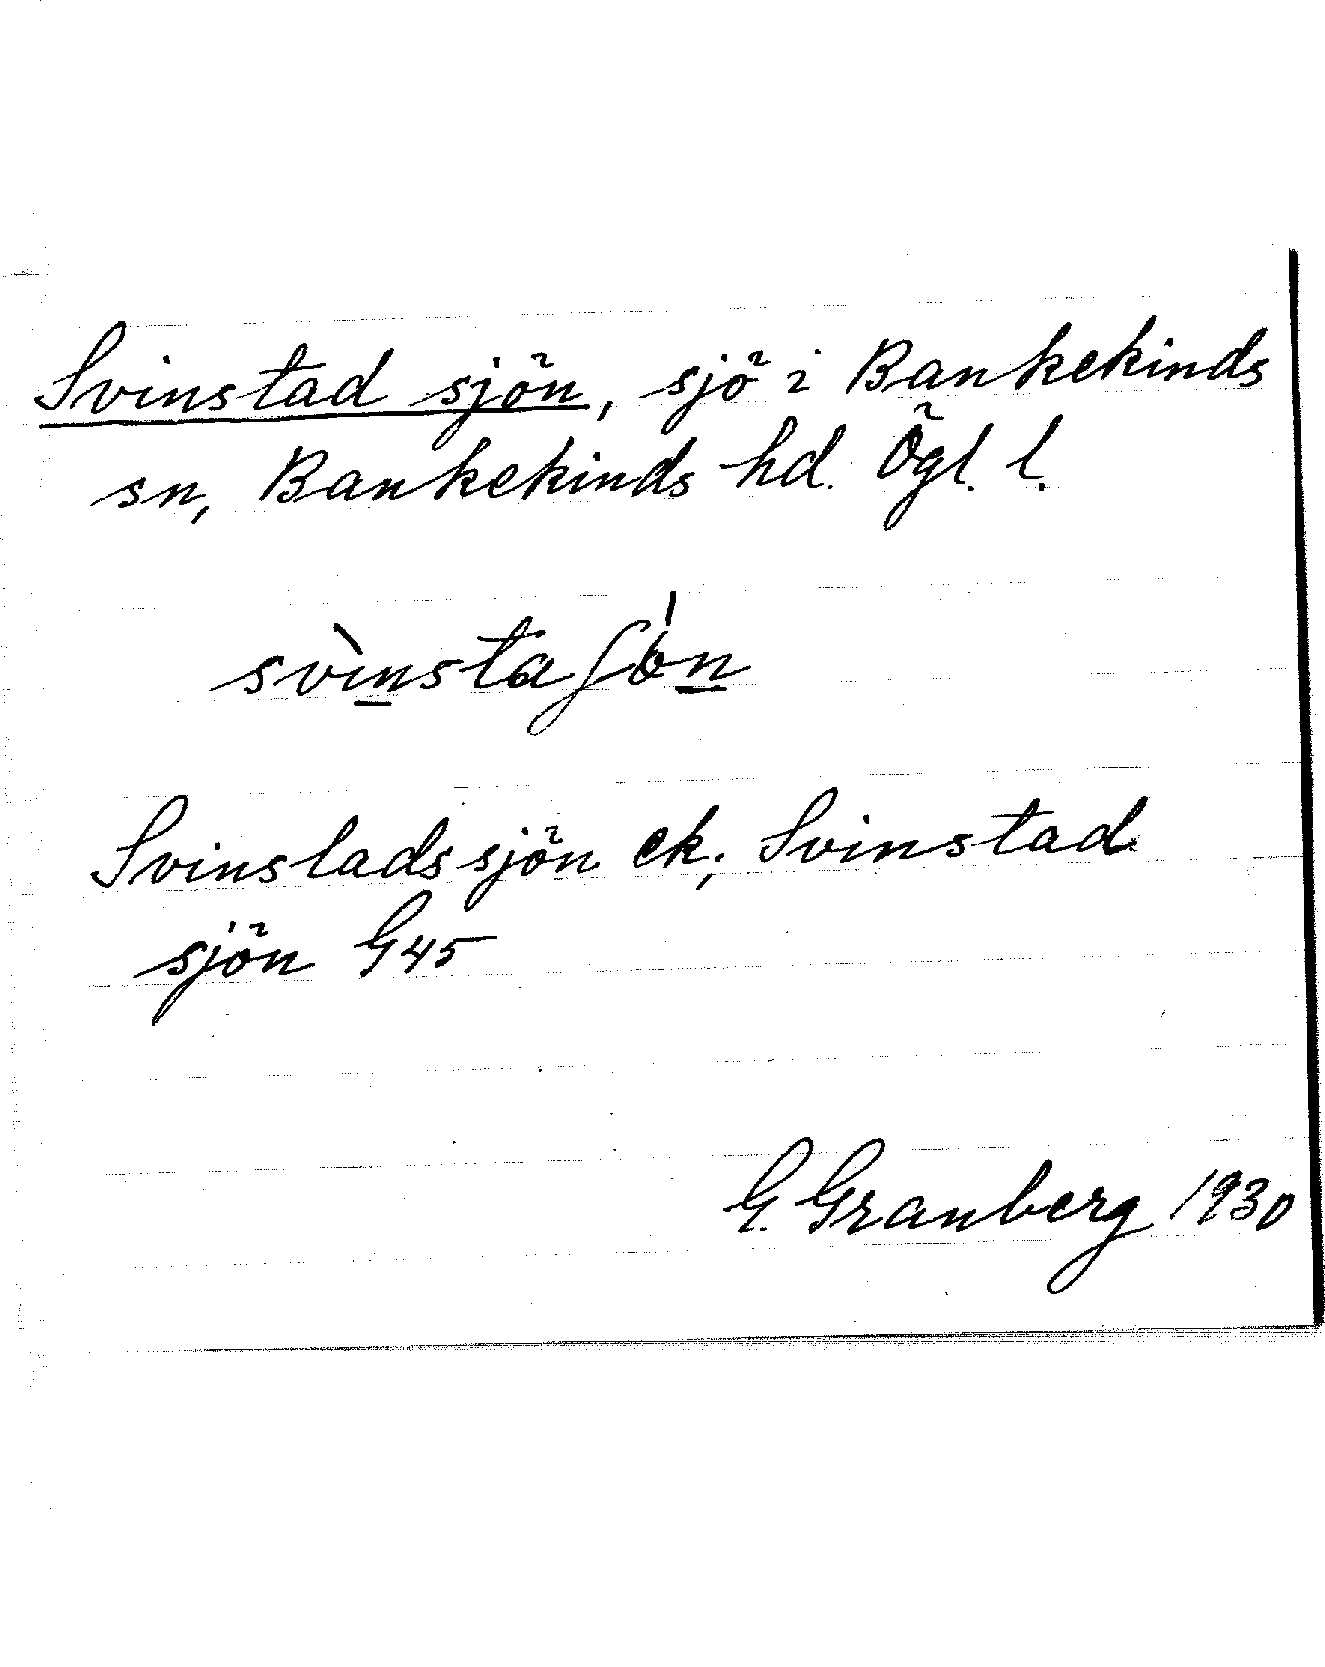 Svinstad sjön, sjö i Bankekinds
sn, Bankekinds hd. Ögl. l.
svìnstaʃón
Svinstadssjön ek; Svinstad
sjön G45
G. Granberg 1930